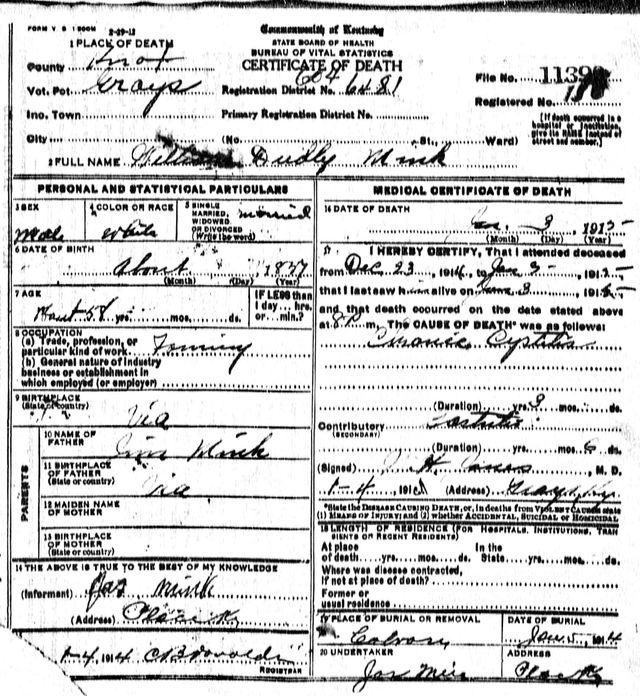 FORM V. S. 1 500M 2-29-12
Commonwealth of Kentucky
STATE BOARD OF HEALTH
BUREAU OF VITAL STATISTICS
CERTIFICATE OF DEATH
1 PLACE OF DEATH
County Knox
Vot. Pct Grays
Registration District No. 6481
File No. 1139
Ino. Town
Primary Registration District No.
Registered No.
City (No. St., Ward)
(If death occurred in a hospital or institution, give its NAME instead of street and number.)
2 FULL NAME William Dudly Mink
PERSONAL AND STATISTICAL PARTICULARS
3 SEX
Male
4 COLOR OR RACE
White
5 SINGLE MARRIED, WIDOWED OR DIVORCED (Write the word)
married
6 DATE OF BIRTH
about 1857
(Month) (Day) (Year)
7 AGE
About 58 yrs. mos. ds.
IF LESS than 1 day... hrs. or... min.?
8 OCCUPATION
(a) Trade, profession, or particular kind of work Farming
(b) General nature of industry business or establishment in which employed (or employer)
9 BIRTHPLACE
(State or country)
Via
PARENTS
10 NAME OF FATHER
Jim Mink
11 BIRTHPLACE OF FATHER
(State or country)
Via
12 MAIDEN NAME OF MOTHER
13 BIRTHPLACE OF MOTHER
(State or country)
14 THE ABOVE IS TRUE TO THE BEST OF MY KNOWLEDGE
(Informant) Jas Mink
(Address)
1-4 1914
REGISTRAR
MEDICAL CERTIFICATE OF DEATH
16 DATE OF DEATH
3 1915
(Month) (Day) (Year)
17 I HEREBY CERTIFY, That I attended deceased
from Dec 23, 1914, to Jan 3, 1915
that I last saw him alive on Jan 3, 1915
and that death occurred on the date stated above
at m. The CAUSE OF DEATH* was as follows:
Chronic Cystitis
(Duration) yrs. 3 mos. ds.
Contributory
(SECONDARY)
(Duration) yrs. mos. 6 ds.
(Signed) M. D.
1-4 191 (Address) Grays Ky
*State the DISEASE CAUSING DEATH, or, in deaths from VIOLENT CAUSES state (1) MEANS OF INJURY; and (2) whether ACCIDENTAL, SUICIDAL or HOMICIDAL
18 LENGTH OF RESIDENCE (FOR HOSPITALS, INSTITUTIONS, TRANSIENTS OR RECENT RESIDENTS)
At place of death yrs. mos. ds. In the State yrs. mos. ds.
Where was disease contracted, if not at place of death?
Former or usual residence
19 PLACE OF BURIAL OR REMOVAL
DATE OF BURIAL
Jan 5, 1914
20 UNDERTAKER
ADDRESS